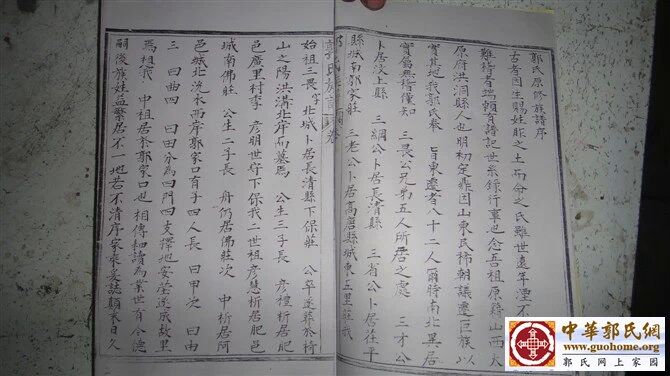 郭氏原修族譜序
古者因生賜姓胙之土而命之氏雖世遠年湮不
難指者端賴有譜記世系錄行事也念吾祖原籍山西大
原府洪洞縣人也明初定鼎因山東民稀朝議遷巨族以
實其地我郭氏奉 旨東遷者八十二人爾時南北異居
實篇無稽僅知 三畏公兄弟五人所居之處 三才公
卜居汶上縣 三綱公卜居長清縣 三省公卜居茌平
縣城南郭家莊 三老公卜居高唐縣城東五里莊我
始祖三畏字北城卜居長清縣下保莊 公卒遂葬於
山之陽洪溝北岸而墓焉 公生三子長 彥禮析居肥
邑廣里村季 彥明世守下保我二世祖彥慧析居肥邑
城南佛莊 公生二子長 舟仍居佛莊次 中析居阿
邑城北洗衣而序郭家口育子四人長 曰甲次 曰由
三 曰曲四 曰田分為四門四支擇地安塋遂成故里
焉想我 中祖居於郭家口也相傳和讀為業世有令德
嗣後族益繁居不一地若不清序家乘妄誌顛末日久
中華郭氏網
www.guohome.org
郭氏網上家園